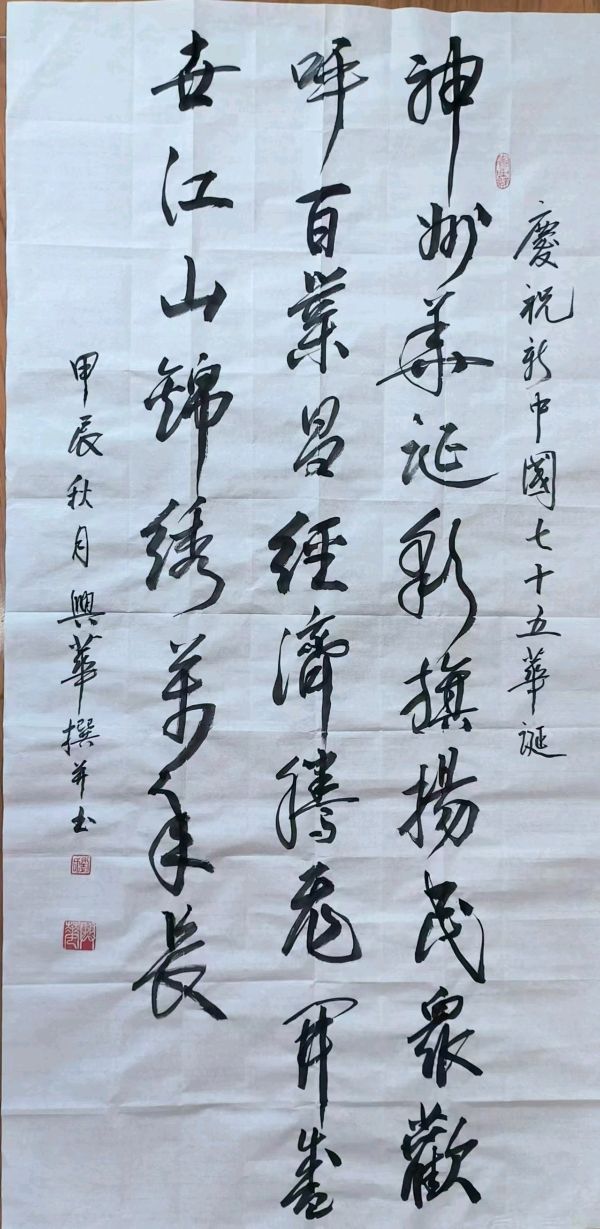 慶祝新中國七十五華誕
神州華誕彩旗揚民眾歡
呼百業昌經濟騰飛開盛
世江山錦绣萬年長
甲辰秋月興華撰并书